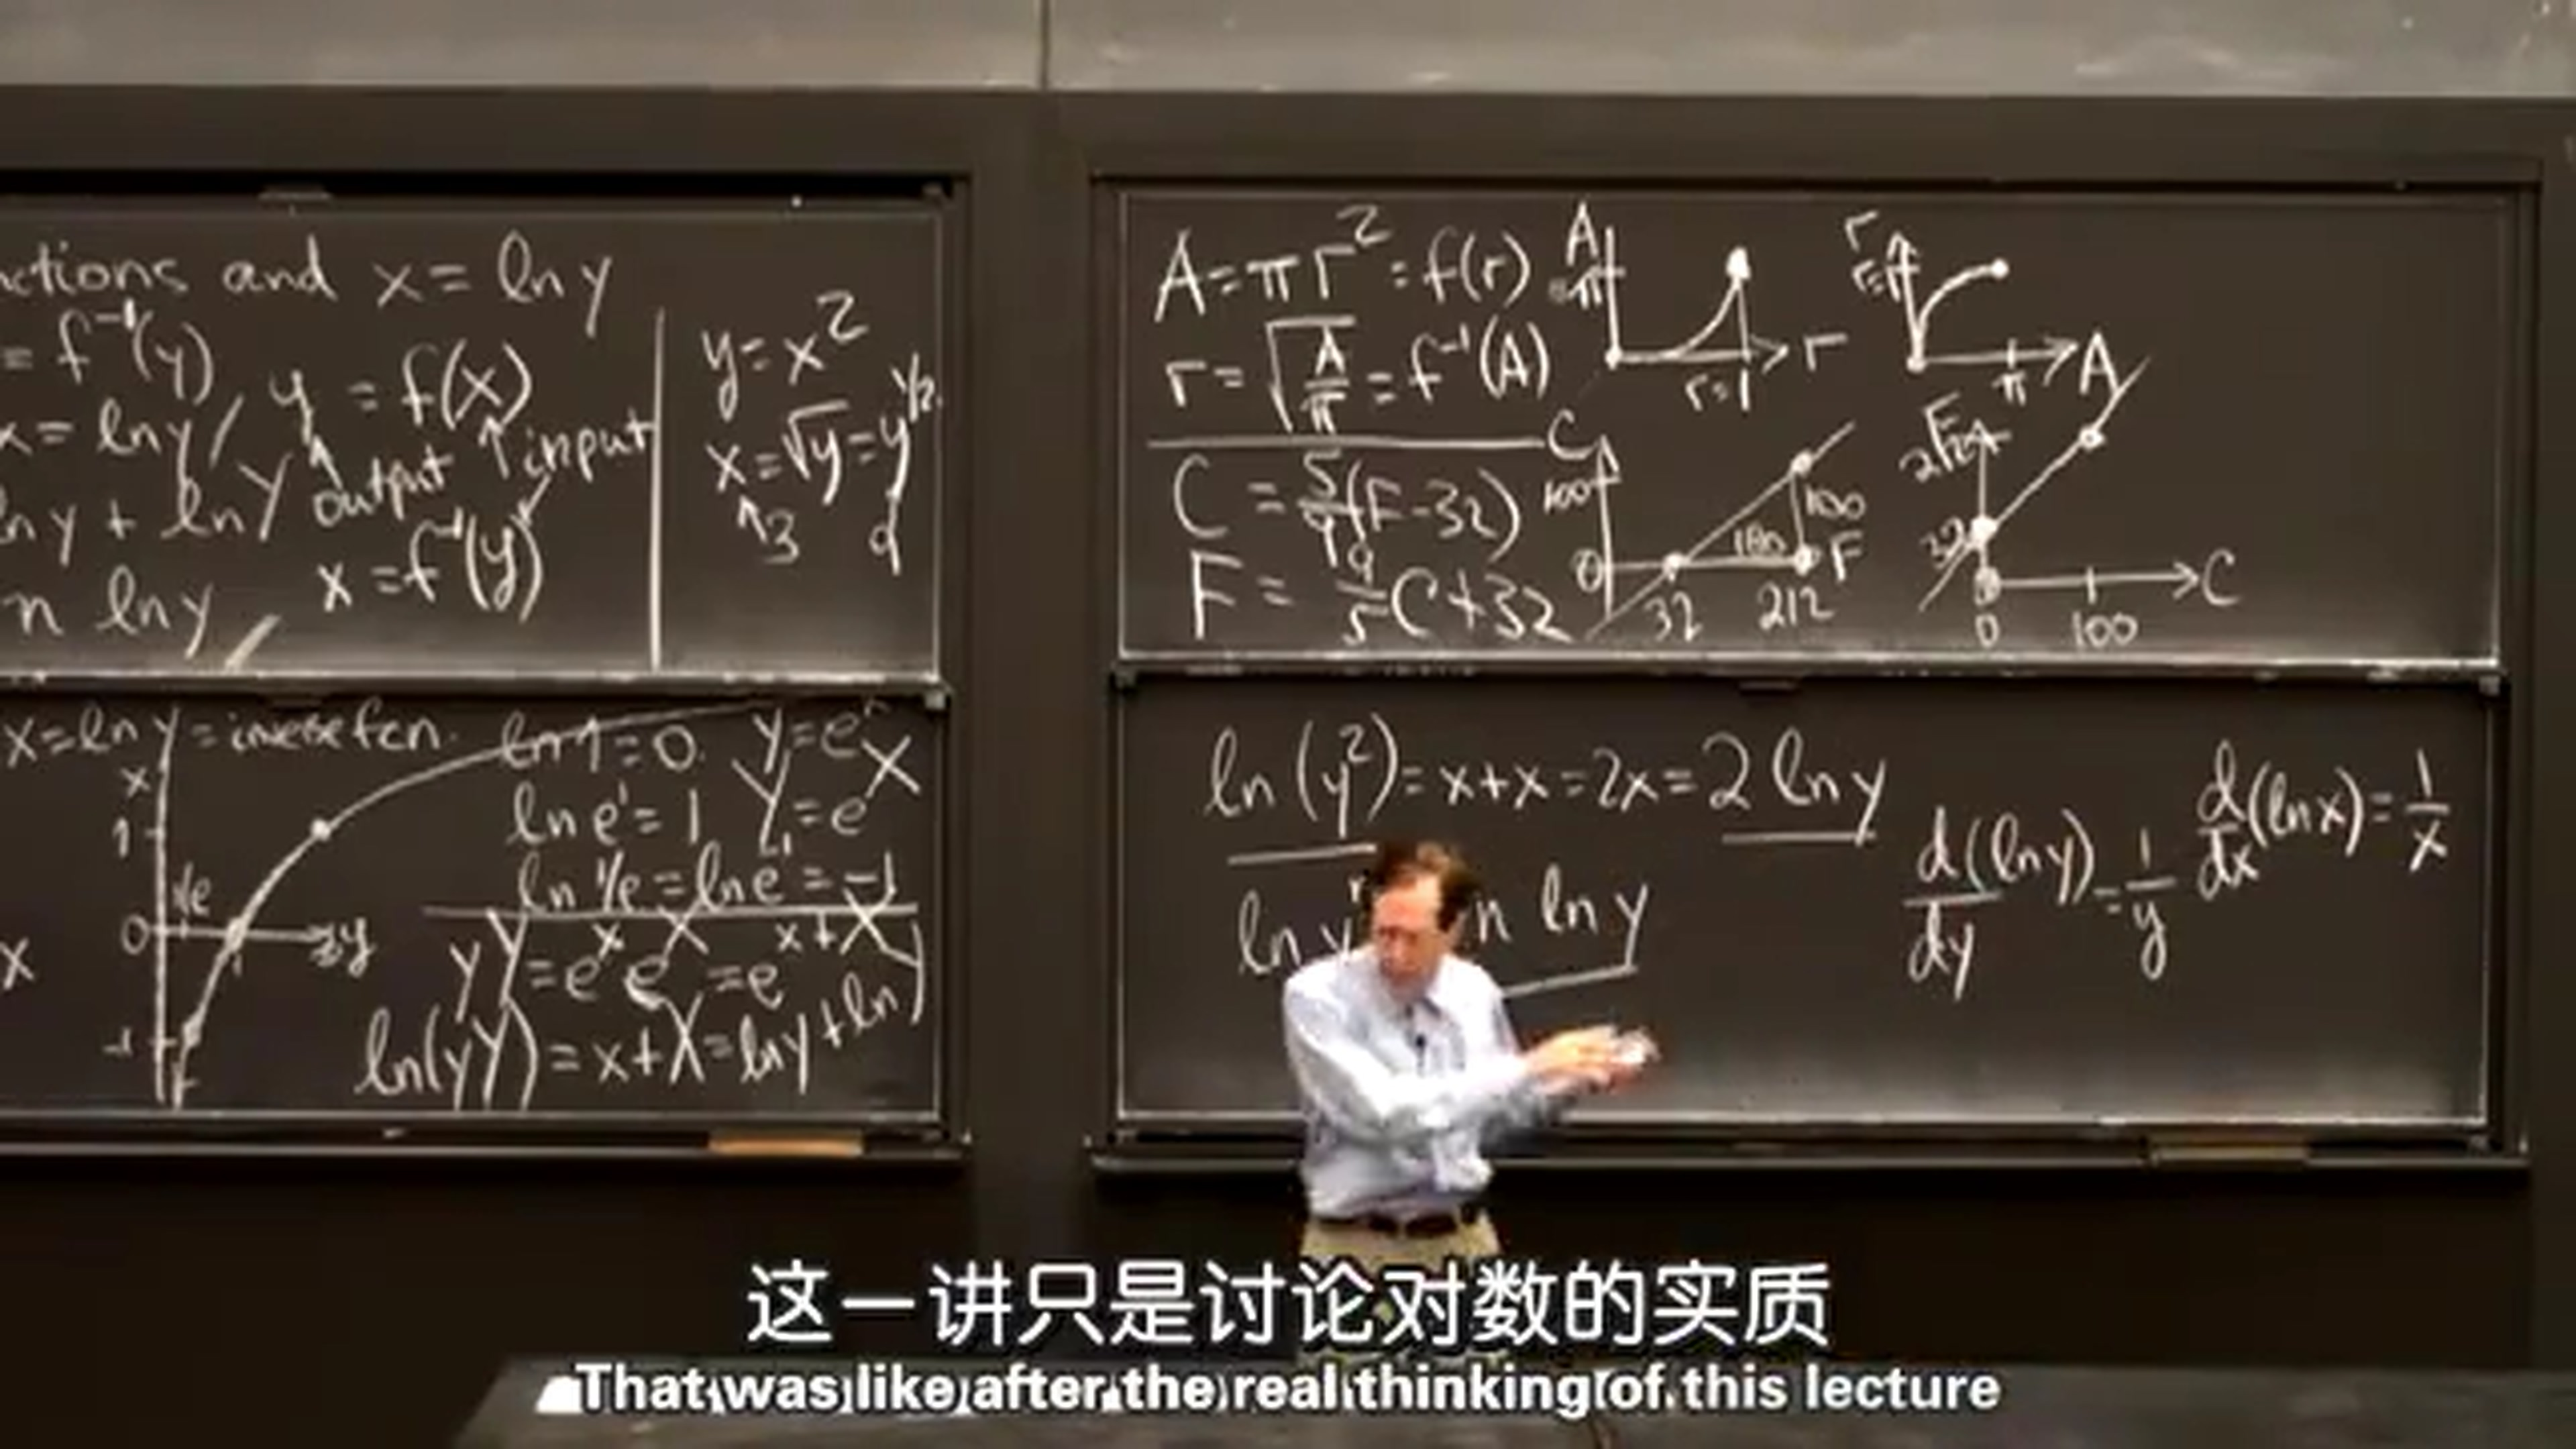 ctions and x = ln y
= f⁻¹(y)
y = f(x)
x = ln y
output
input
ln y + ln Y
x = f⁻¹(y)
n ln y
y = x²
x = √y = y^1/2
3
9
x = ln y = inverse fcn.
x
1
1/e
0
y
-1
x
ln 1 = 0
y = eˣ
ln e¹ = 1
Y = e^X
ln 1/e = ln e⁻¹ = -1
yY = eˣ e^X = e^x+X
ln(yY) = x + X = ln y + ln Y
A = πr² = f(r)
r = √(A/π) = f⁻¹(A)
A
π
r=1
r
r
π
A
C = 5/9 (F - 32)
F = 9/5 C + 32
C
100
0
32
212
180
100
F
F
212
32
0
100
C
ln (y²) = x + x = 2x = 2 ln y
ln y
n ln y
d(ln y)/dy = 1/y
d/dx (ln x) = 1/x
这一讲只是讨论对数的实质
That was like after the real thinking of this lecture